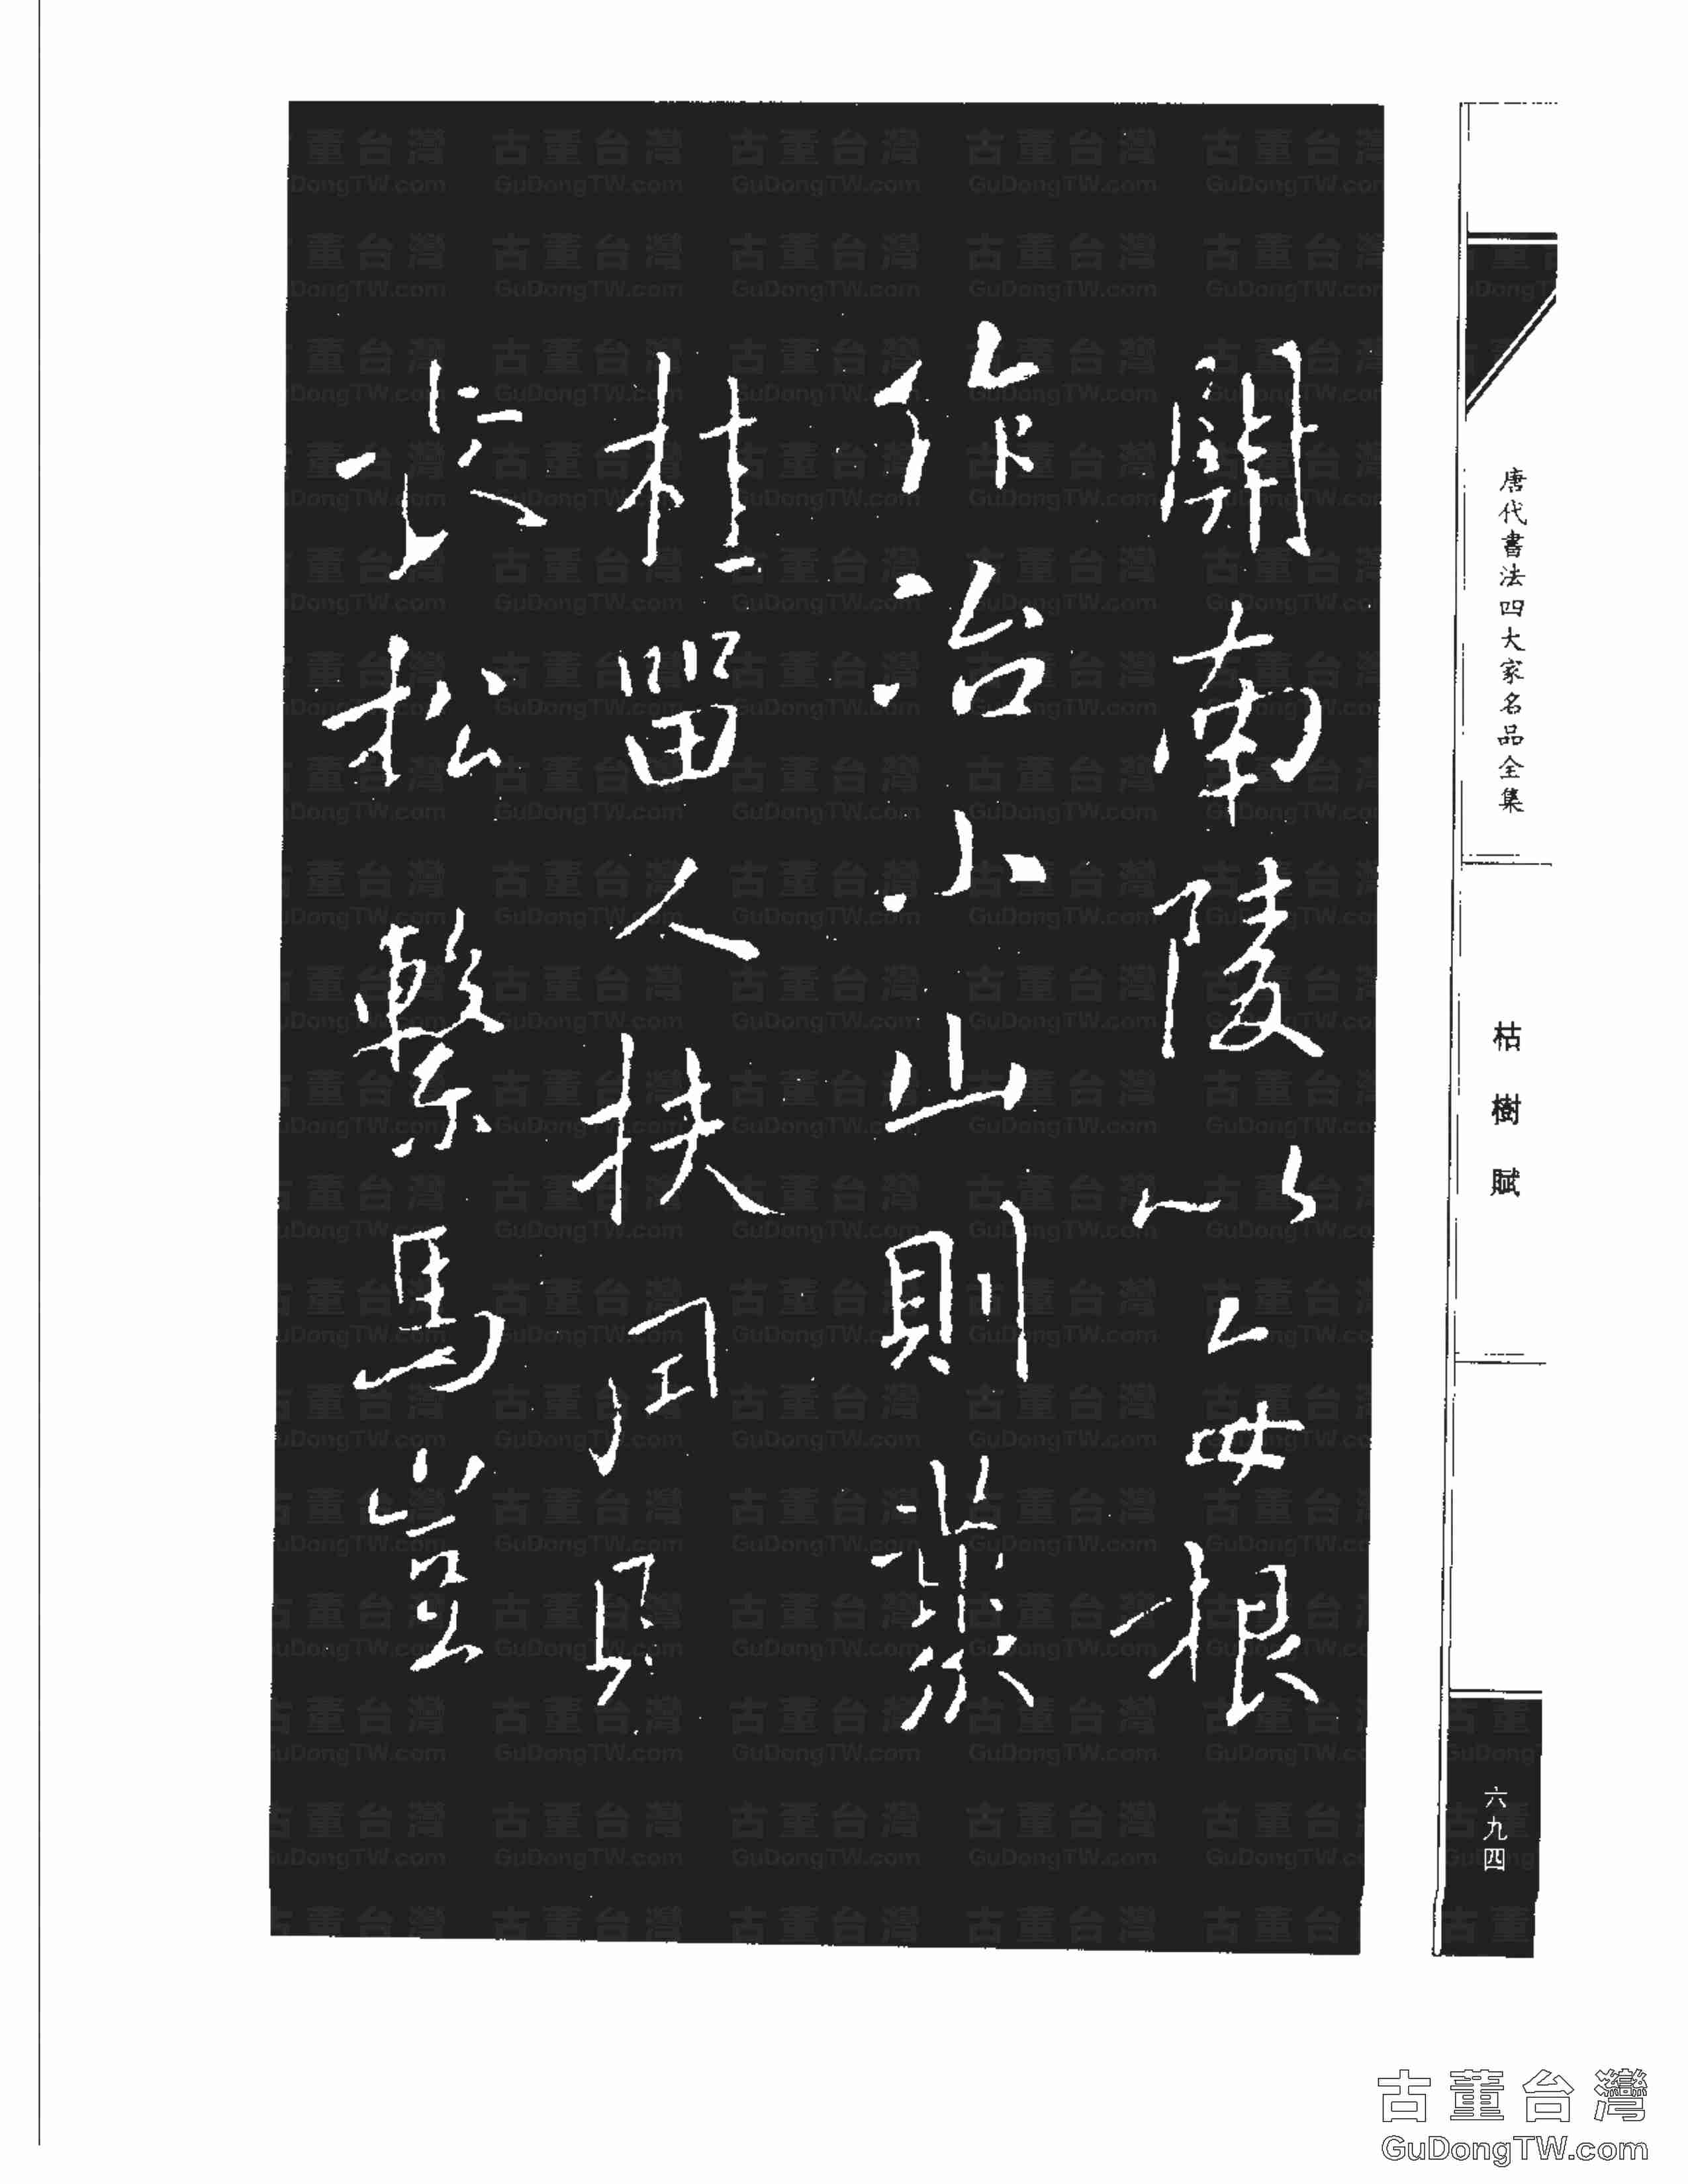 唐代書法四大家名品全集
枯樹賦
六九四
關南陵以每根
作冶小山則叢
桂留人扶風則
長松繫馬豈
古董台灣
GuDongTW.com